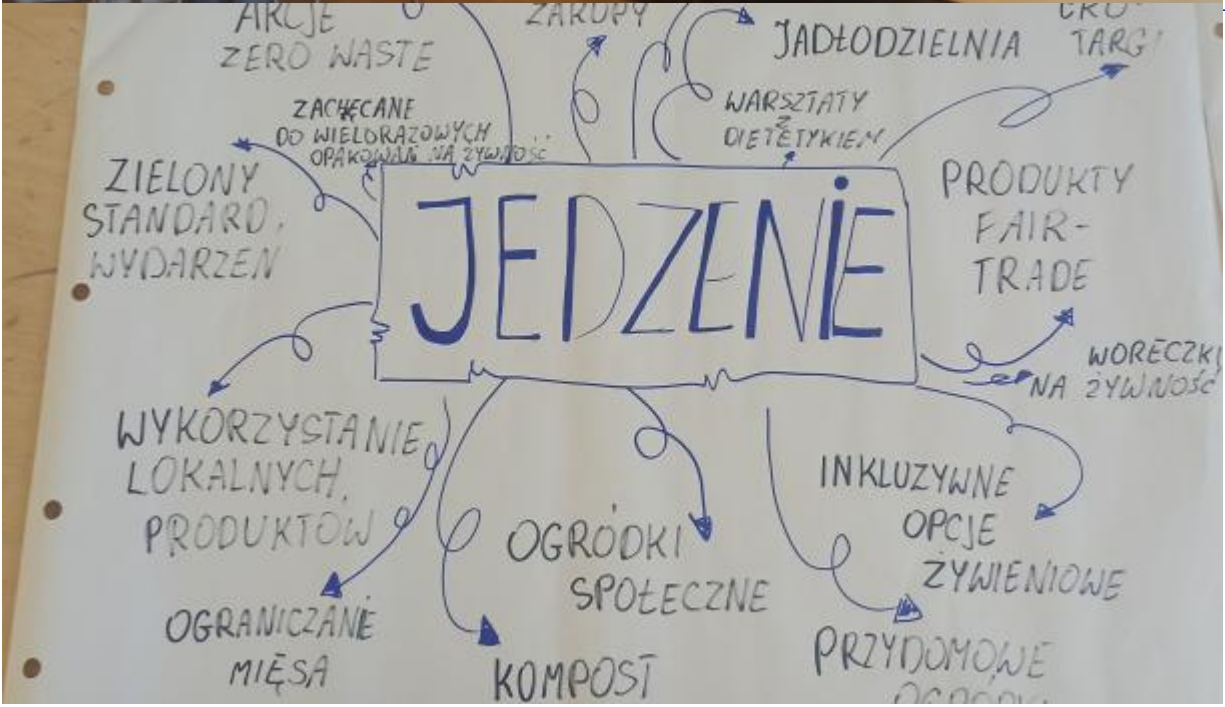 AKCJE
ZERO WASTE
ZAKUPY
JADŁODZIELNIA
TARGI
ZACHĘCANE
DO WIELORAZOWYCH
OPAKOWAŃ NA ŻYWNOŚĆ
WARSZTATY
Z
DIETETYKIEM
ZIELONY
STANDARD
WYDARZEŃ
JEDZENIE
PRODUKTY
FAIR-
TRADE
WORECZKI
NA ŻYWNOŚĆ
WYKORZYSTANIE
LOKALNYCH
PRODUKTÓW
INKLUZYWNE
OPCJE
ŻYWIENIOWE
OGRÓDKI
SPOŁECZNE
OGRANICZANIE
MIĘSA
KOMPOST
PRZYDOMOWE